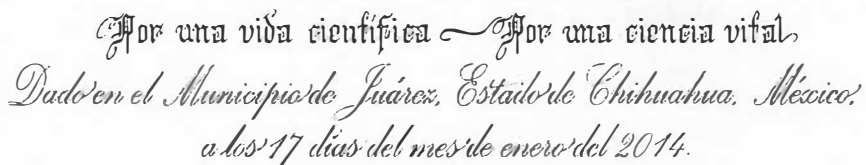 Por una vida científica Por una ciencia vital
Dado en el Municipio de Juárez, Estado de Chihuahua, México,
a los 17 días del mes de enero del 2014.